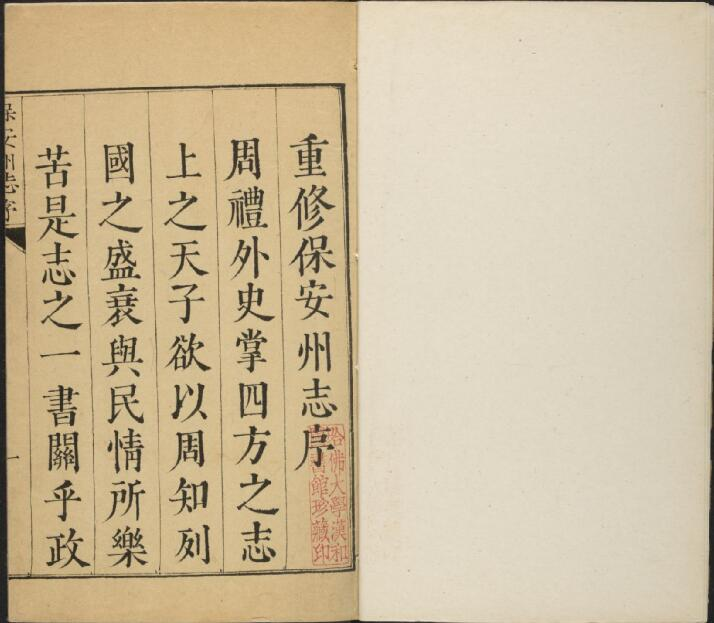 重修保安州志序
周禮外史掌四方之志
上之天子欲以周知列
國之盛衰與民情所樂
苦是志之一書關乎政
保安州志序
一
哈佛大學漢和
圖書館珍藏印